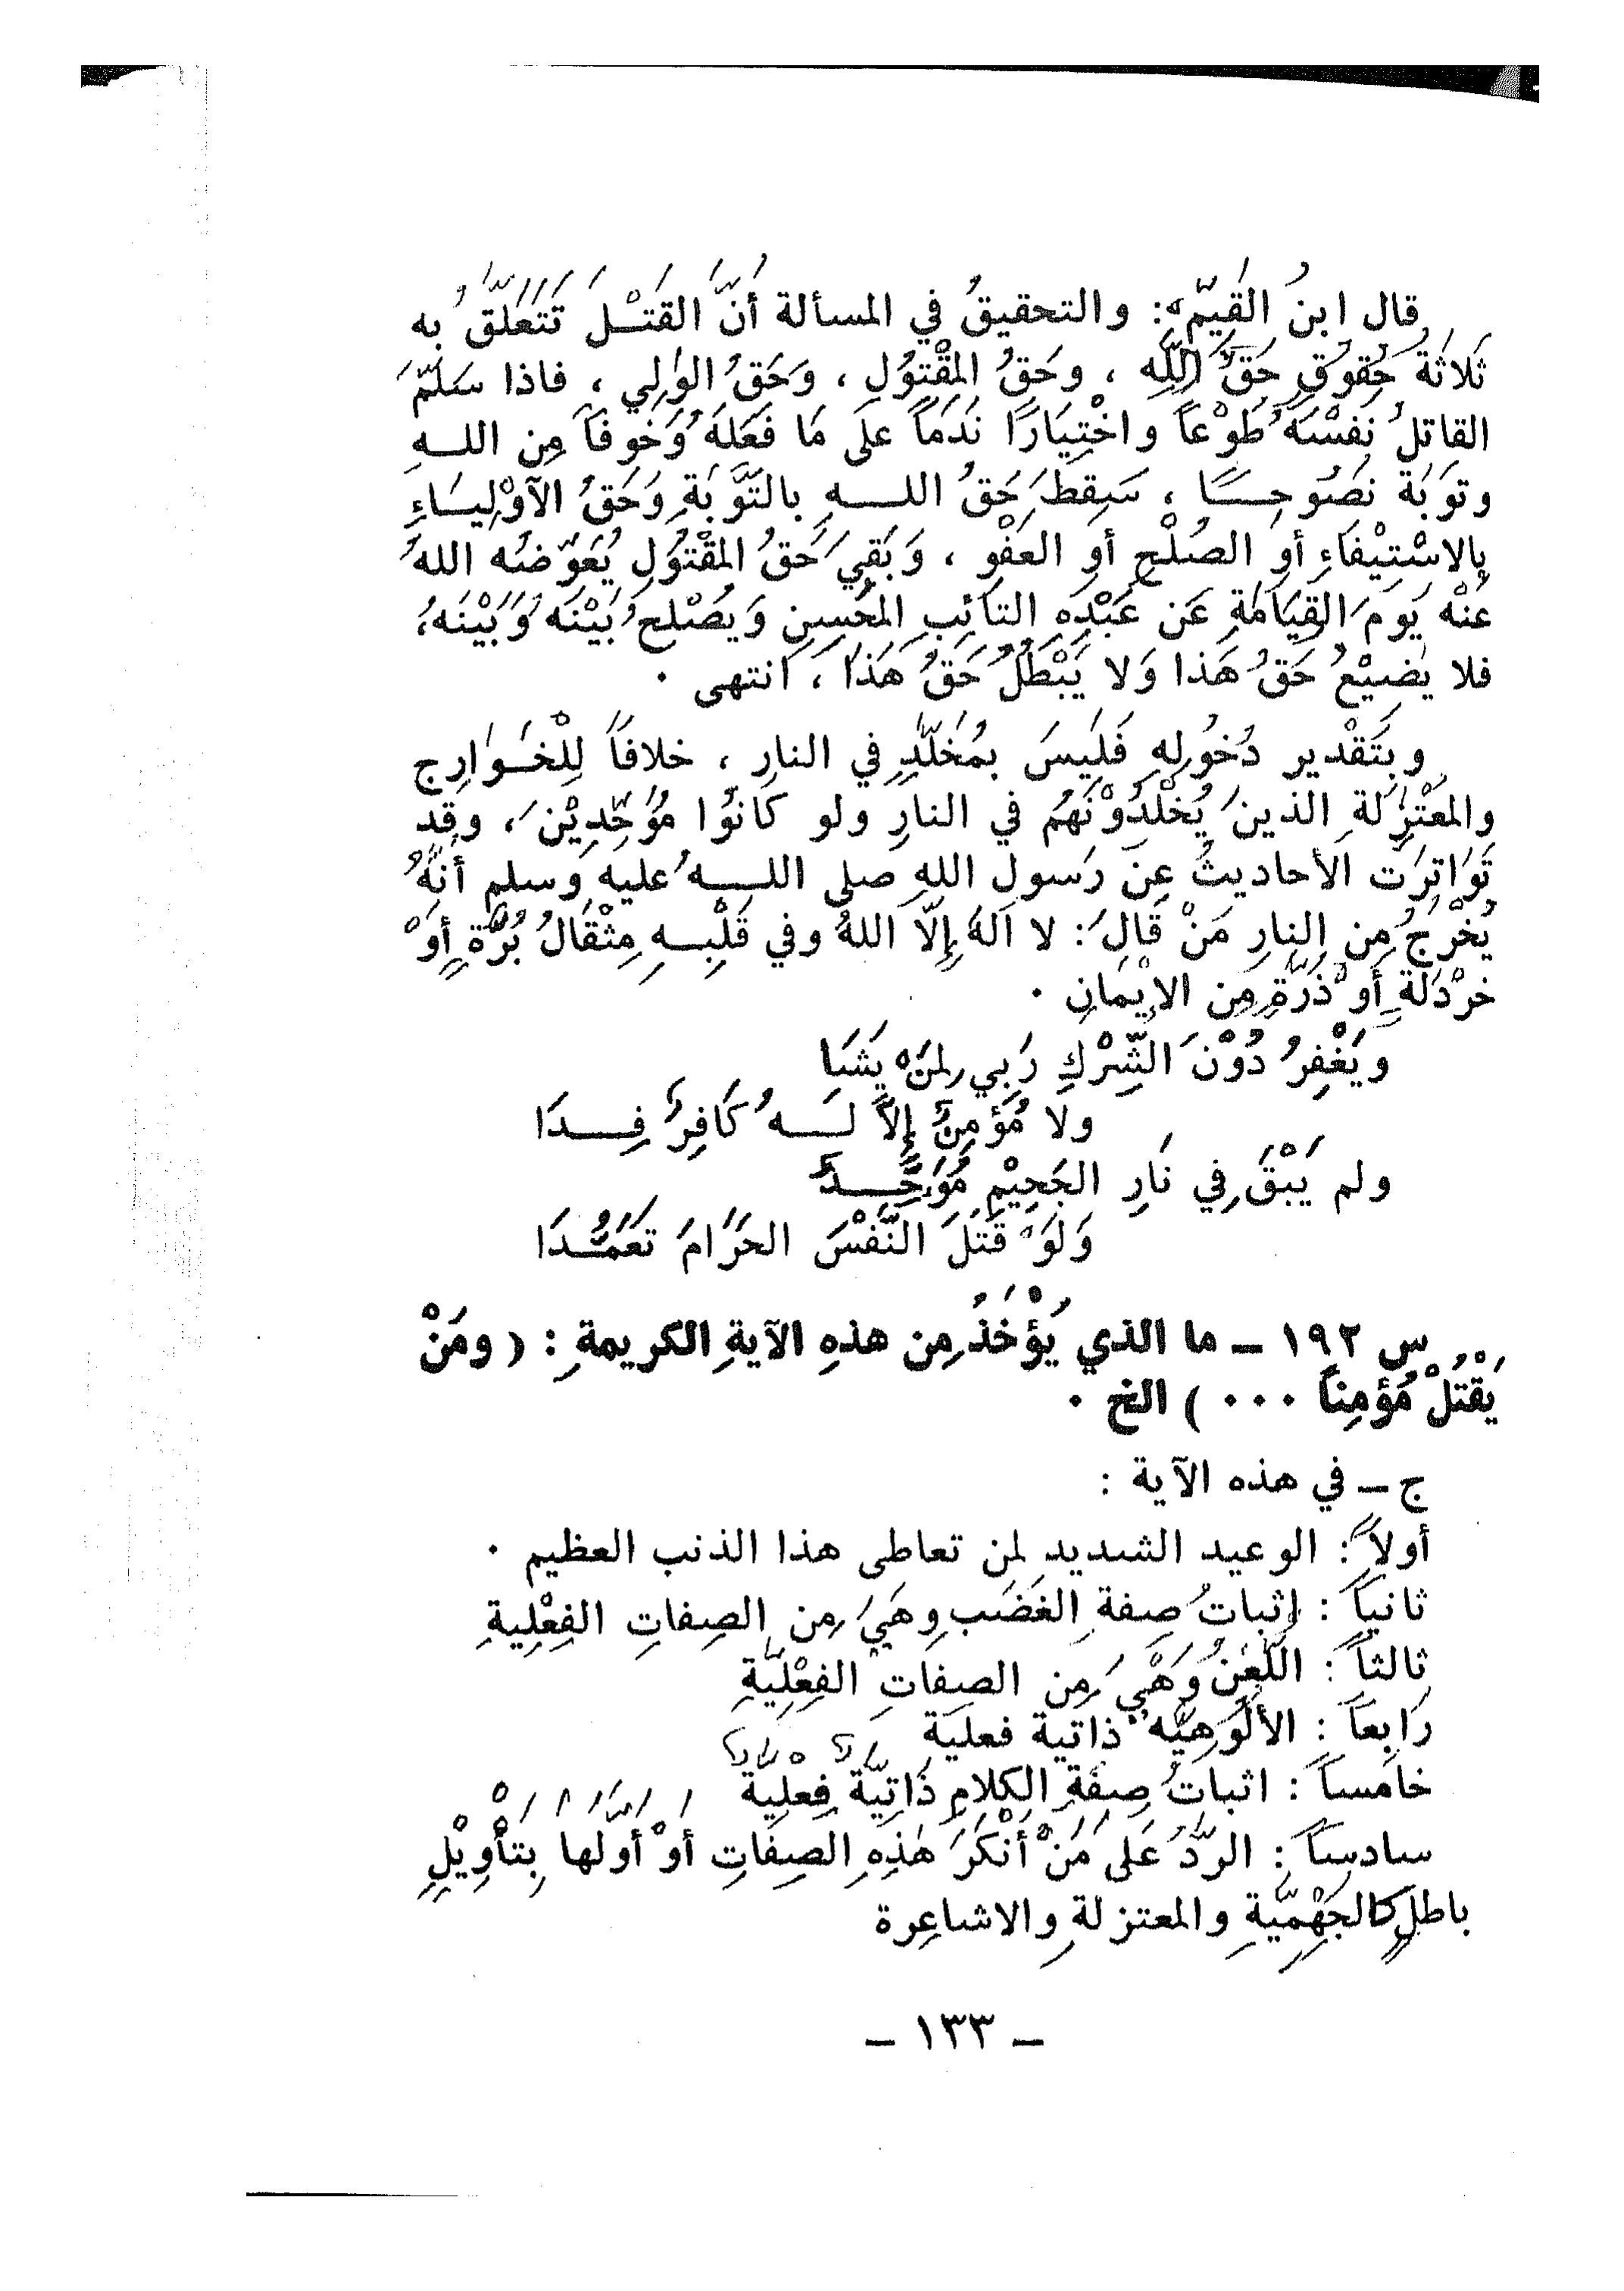 قال ابنُ القَيِّمْ : والتحقيقُ في المسألة أَنَّ القَتْلَ تَتَعَلَّقُ به
ثَلاثَةُ حُقُوقٍ حَقٌّ اللَّهِ ، وحَقُ المقْتُولِ ، وَحَقُ الوَلِي ، فاذا سَلَّمَ
القاتلُ نَفْسَهُ طَوْعاً واخْتِيَارًا نَدَمَاً علَى مَا فَعَلَهُ وَخَوفَاً مِن اللهِ
وتَوبَةً نصُوحاً ، سَقطَ حَقُ اللهِ بالتَّوْبَةِ وَحَقُ الأَوْلِيَاءِ
بِالاسْتِيْفَاءِ أو الصُلْحِ أو العَفْوِ ، وَبَقِيَ حَقُ المقْتُولِ يُعَوِّضُه اللهُ
عَنْه يَومَ القِيَامَةِ عَن عَبْدِهِ التَائِبِ المُحْسِنِ وَيُصْلحُ بَيْنَه وَبَيْنَه،
فلا يَضِيْعُ حَقُ هَذا وَلا يَبْطُلُ حَقُ هَذا ، انتهى ٠
وبِتَقْدير دُخُولِهِ فَلَيسَ بمُخَلَّدٍ في النارِ ، خلافَاً لِلْخَوَارِج
والمعْتْزِلَةِ الذينَ يُخْلِدُوْنَهُم في النارِ ولو كَانُوا مُوَحِّدِيْنَ ، وقَد
تَوَاتَرَت الأحاديثُ عَنْ رَسولِ اللهِ صلى اللهُ عليهِ وسلم أنَهُ
يُخْرَجُ مِن النارِ مَنْ قَالَ : لا الَهَ إِلّا اللهُ وفي قَلْبِهِ مِثْقَالُ بُرَّةٍ أَوْ
خرْدَلَةٍ أَوْ ذَرَّةٍ مِن الايْمانِ ٠
ويَغْفِرُ دُوْنَ الشِّرْكِ رَبي لِمَنْ يَشَا
ولا مُؤمِنٌ إلاَّ لَهُ كَافِرٌ فِدَا
ولم يَبْقَ في نَارِ الجَحِيْمِ مُوَحِّدٌ
وَلَوْ قَتَلَ النَّفْسَ الحَرَامَ تَعَمُّدَا
س ١٩٢ ــ ما الذي يُؤْخَذُ مِن هذهِ الآيةِ الكريمةِ : ( ومَنْ
يَقْتُلْ مُؤمِنَاً ٠٠٠ ) الخ ٠
ج ــ في هذه الآية :
أولاً : الوعيد الشديد لمن تعاطى هذا الذنب العظيم ٠
ثانياً : إثباتُ صِفةِ الغَضَب وهَيَ مِن الصِفاتِ الفِعْلِيةِ
ثالثاً : اللَّعْنُ وَهْيَ مِن الصفاتِ الفِعْلِيَّةِ
رَابعاً : الألُوهِيَّه ذاتية فعلية
خامَساً : اثباتُ صِفَةِ الكلامِ ذَاتِيَّةً فِعْلِيَةً
سادساً : الرَّدُ عَلى مَنْ أَنْكَرَ هَذِهِ الصِفَاتِ أوْ أَوَّلَها بِتَأْوِيْلٍ
باطلٍ كالجَهْمِيَّةِ والمعتزلةِ والاشاعِرة
ــ ١٣٣ ــ